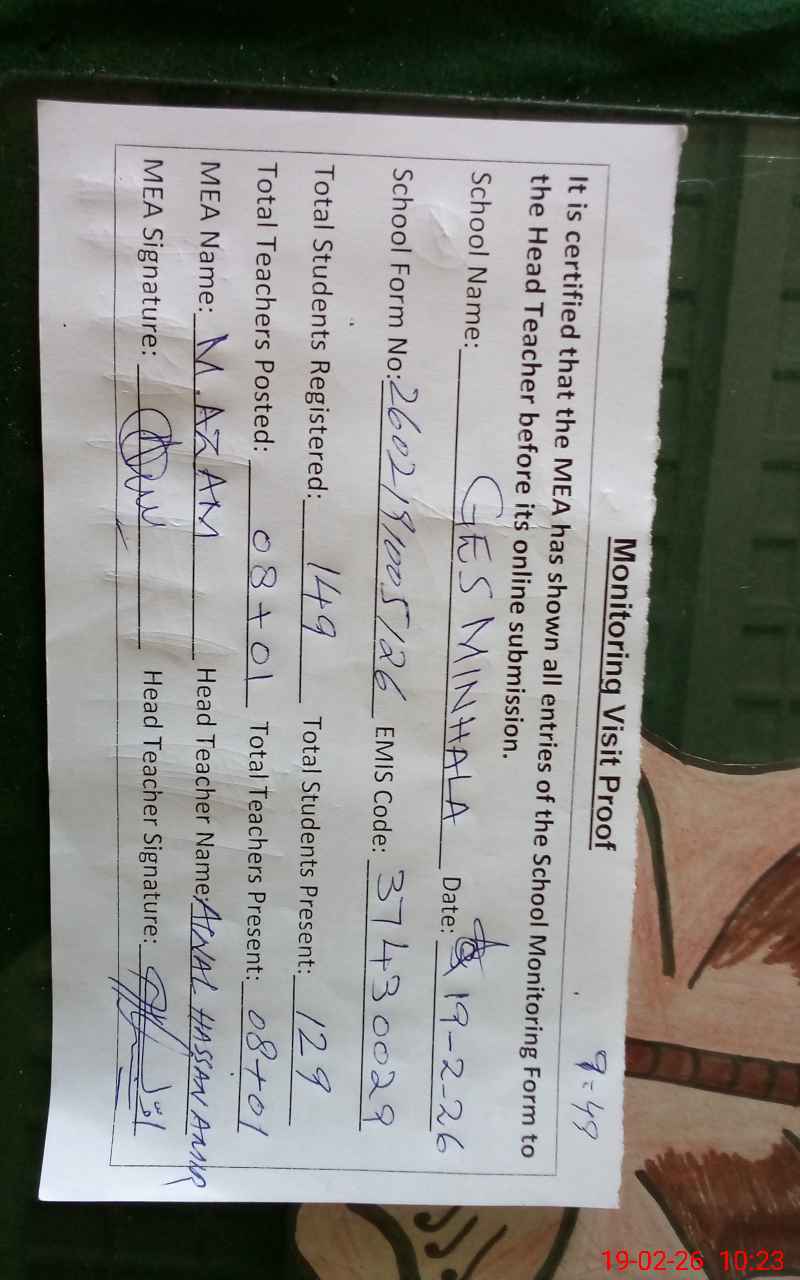 Monitoring Visit Proof
9=49
It is certified that the MEA has shown all entries of the School Monitoring Form to
the Head Teacher before its online submission.
School Name: GES MINHALA Date: 19-2-26
School Form No: 260219/005/26 EMIS Code: 37430029
Total Students Registered: 149 Total Students Present: 129
Total Teachers Posted: 08+01 Total Teachers Present: 08+01
MEA Name: M. AZAM Head Teacher Name: HASSAN AMIR
MEA Signature: Head Teacher Signature:
19-02-26 10:23